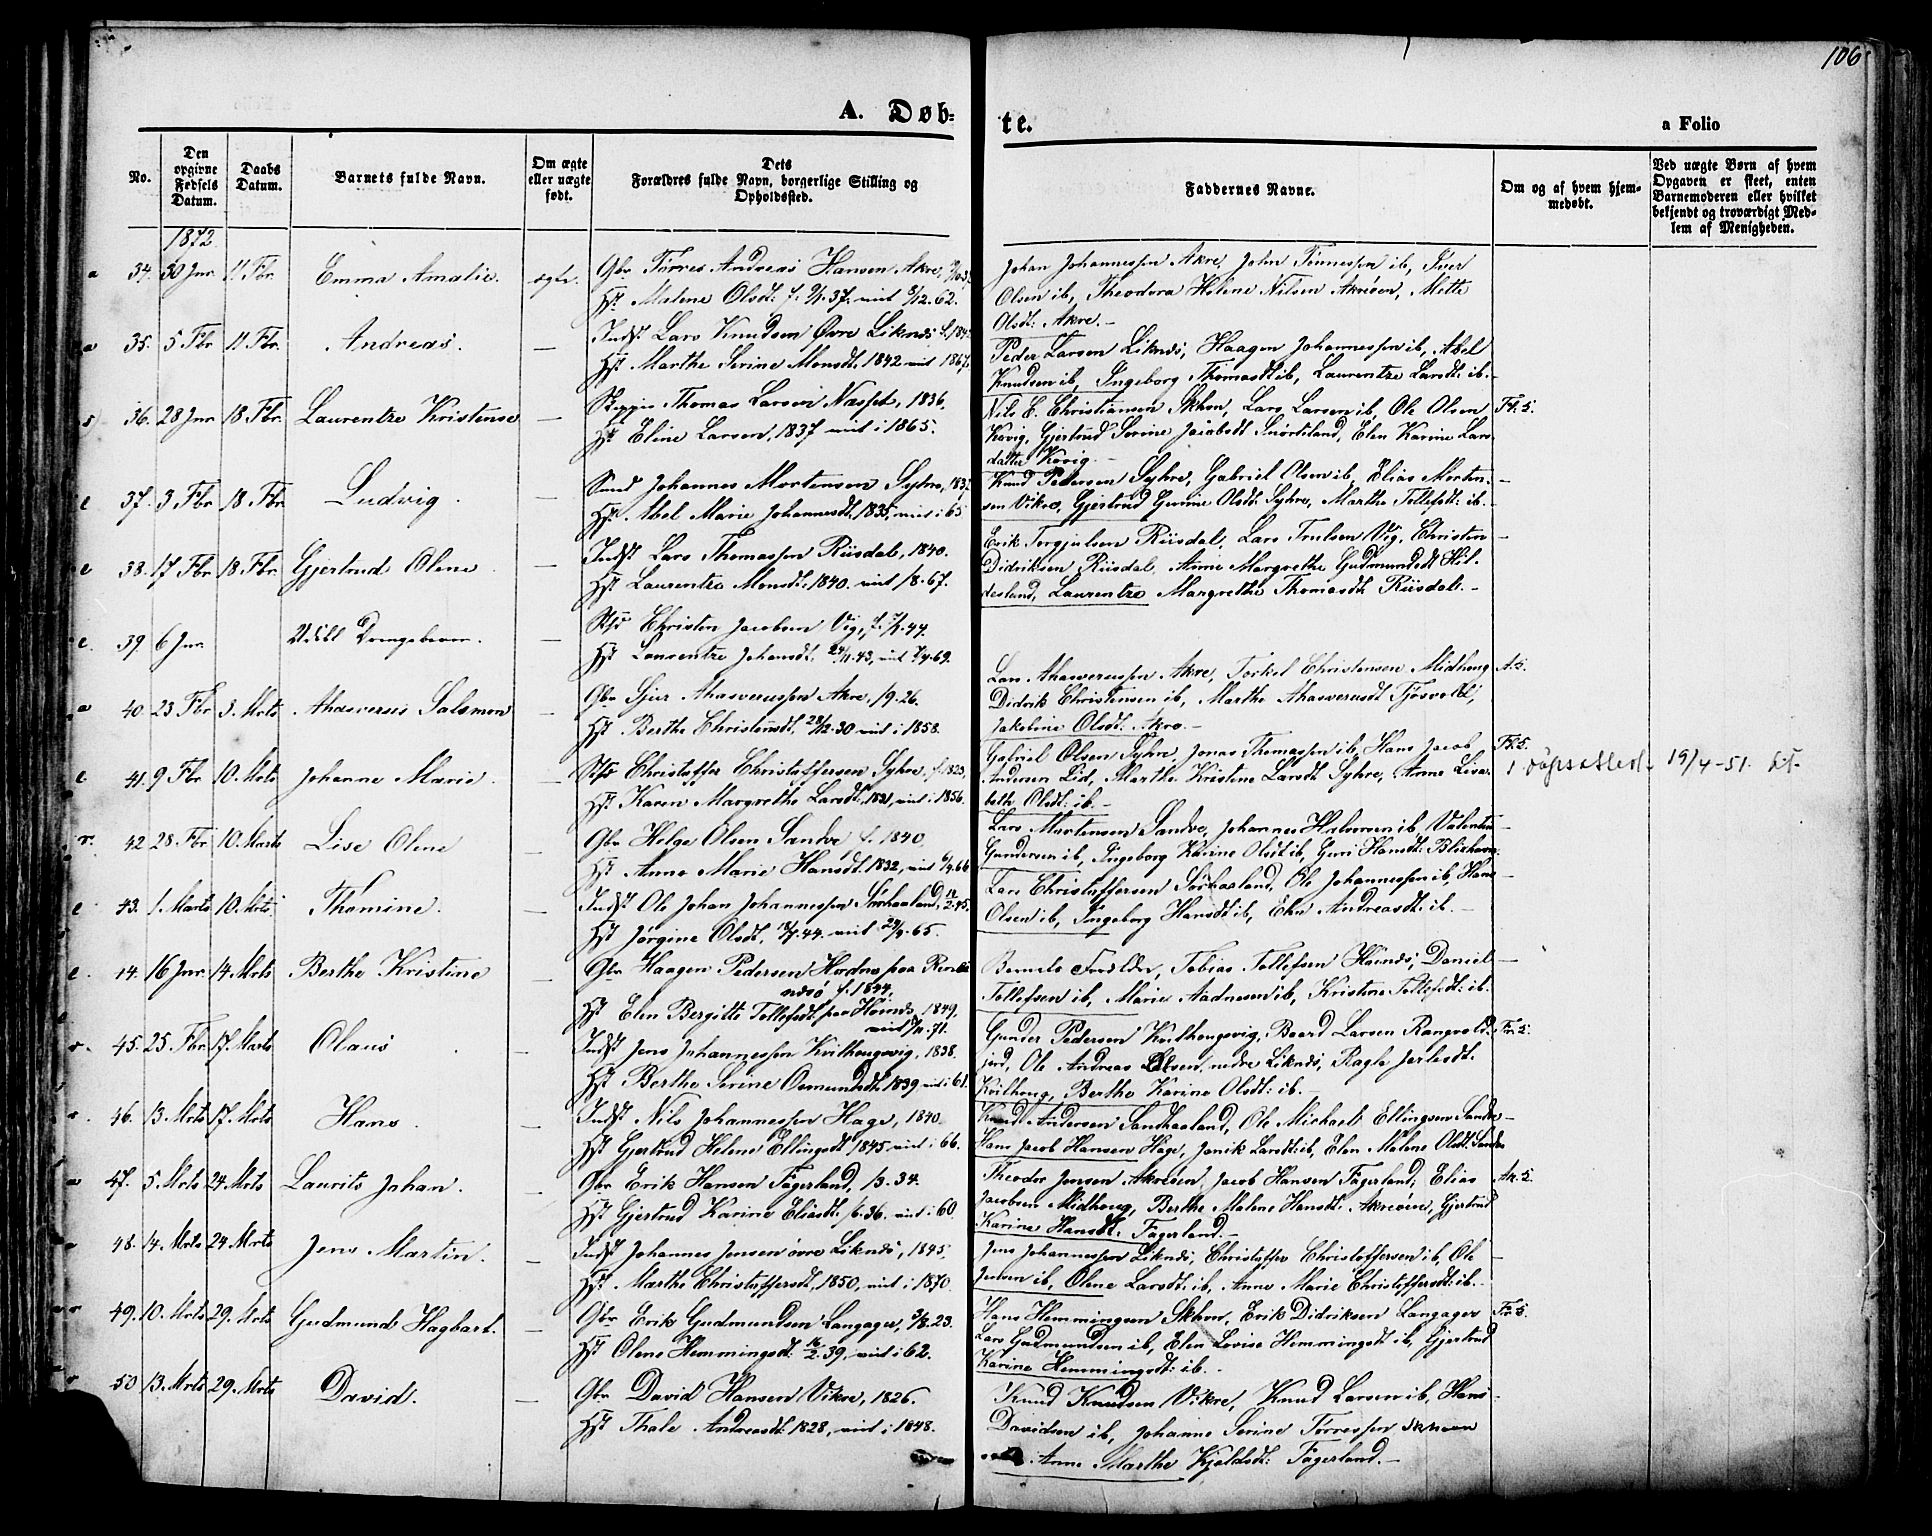 106
A. Døb-
te.
a Folio
No.
Den opgivne Fødsels Datum.
Daabs Datum.
Barnets fulde Navn.
Om ægte eller uægte født.
Dets Forældres fulde Navn, borgerlige Stilling og Opholdssted.
Faddernes Navne.
Om og af hvem hjemmedøbt.
Ved uægte Børn af hvem Opgaven er skeet, enten Barnemoderen eller hvilket bekjendt og troværdigt Medlem af Menigheden.
1872
34. 30 Jnr. 11 Fbr. Emma Amalie. ægte. Gbr Tørres Andreas Hansen Akre,
Hst. Malene Olsdt: f. 9/1.37. viet 3/12.62.
Johan Johannessen Akre, John Tønnessen ib, Iver
Olsen ib, Theodora Helene Nilsen Akrøen, Mette
Olsdt: Akre.-
35. 5 Fbr 11 Fbr. Andreas. — Indst Lars Knudsen Øvre Liknes f. 184
Hst Marthe Serine Monsdt. 1842 viet 1867.
Peder Larsen Liknes, Haagen Johannessen ib, Abel
Knudsen ib, Ingeborg Thomasdt ib, Laurentze Larsdt: ib.-
36. 28 Jnr 18. Fbr. Laurentze Kristense — Thomas Larsen Næsset, 1836,
Hst Eline Larsen, 1837 viet i 1865.
Nils E. Christiansen Skhvn, Lars Larsen ib, Ole Olsen
Kovig, Gjertrud Serine Jacobsdt Snørteland, Elen Karine Lars-
datter Kovig.-
37. 3 Fbr 18. Fbr. Ludvig. — Smed Johannes Mortensen Syhre, 183
Hst. Abel Marie Johannesdt. 1835, viet i 65
Knud Pedersen Syhre, Gabriel Olsen ib, Elias Morten-
sen Vikre, Gjertrud Gurine Olsdt: Syhre, Marthe Tollefsdt: ib.-
38. 17 Fbr 18 Fbr. Gjertrud Olene. — Indst Lars Thomassen Riisdal, 1840.
Hst Laurentze Monsdt. 1840. viet 18.67.
Erik Torgjulsen Riisdal, Lars Trulsen Vig, Christen
Didriksen Riisdal, Anne Margrethe Gudmundsdt Hil-
desland, Laurentze Margrethe Thomasdt Riisdal.-
39. 6 Jnr. Udøbt Drengebarn. — Christen Jacobsen Vig, f. 7/7.44.
Hst Laurentze Johansdt. 24/11.43, viet 7/4.69.
40 23 Fbr 3. Mrts Ahasverus Salomon — Gbr Sjur Ahasverussen Akre, 19.26.
Hst Berthe Christensdt. 28/12.30 viet i 1858.
Lars Ahasverussen Akre, Torkel Christensen Midhoug
Didrik Christensen ib, Marthe Ahasverusdt Tjøsvold,
Jakobine Olsdt: Akre.-
41. 9 Fbr. 10. Mrts Johanne Marie. — Christoffer Christoffersen Syhre, f. 1823,
Hst Karen Margrethe Larsdt. 1831, viet i 1856.
Gabriel Olsen Syhre, Jonas Thomassen ib, Hans Jacob
Andersen Lid, Marthe Kristine Larsdt Syhre, Anne Lisa-
beth Olsdt: ib.-
19/4-51.
42 28. Fbr 10. Marts Lise Olene — Gbr Helge Olsen Sandve, f. 1840,
Hst Anne Marie Hansdt. 1832, viet 6/4.66
Lars Mortensen Sandve, Johannes Halvorsen ib, Valentin
Gundersen ib, Ingeborg Karine Olsdt ib, Guri Hansdt: Blixhavn
43. 1. Marts 10. Mrts Thomine. — Indst Ole Johan Johannessen Sørhaaland, 12/2.45.
Hst Jørgine Olsdt, 18/7.44. viet 24/9.65.
Lars Christoffersen Sørhaaland, Ole Johannessen ib, Hans
Olsen ib, Ingeborg Hansdt ib, Elen Andreasdt: ib.-
14. 16 Jnr. 14. Mrts Berthe Kristine — Gbr Haagen Pedersen Hordnæs paa Renne-
sø f. 1844,
Hst Elen Bergitte Tollefsdt paa Høines, 1849,
viet 71.
Barnets Forældre, Tobias Tollefsen Høines, Daniel
Tollefsen ib, Marie Aadnesen ib, Kristine Tollefsdt: ib.
45. 25. Fbr 17. Marts Olaus — Indst Jens Johannessen Kvilhougsvig, 1838.
Hst Berthe Serine Osmundsdt. 1839 viet i 61.
Gunder Pedersen Kvilhougsvig, Baard Larsen Rangvold-
jord, Ole Andreas Olsen, nedre Liknes, Ragla Jertsdt.
Kvilhoug, Berthe Karine Olsdt: ib.-
46. 13. Mrts 17. Mrts Hans. — Indst Nils Johannessen Hage, 1840.
Hst Gjertrud Helene Ellingsdt. 1845 viet i 66.
Knud Andersen Sandhaaland, Ole Michael Ellingsen Sandve
Hans Jacob Hansen Hage, Janik Larsdt ib, Elen Malene Olsdt Sandve
47. 5. Mrts 24. Mrts Laurits Johan. — Gbr Erik Hansen Fagerland, 13.34.
Hst Gjertrud Karine Eliasdt: 36. viet i 60
Theodor Jensen Akrøen, Jacob Hansen Fagerland, Elias
Jacobsen Midhoug, Berthe Malene Hansdt. Akrøen, Gjertrud
Karine Hansdt: Fagerland.-
48. 14. Mrts 24. Mrts Jens Martin. — Indst Johannes Jensen øvre Liknes, 1845.
Hst. Marthe Christoffersdt, 1850, viet i 1870
Jens Johannessen Liknes, Christoffer Christoffersen ib, Ole
Jensen ib, Olene Larsdt: ib, Anne Marie Christoffersdt: ib.-
49. 10. Mrts 29. Mrts Gudmund Hagbart. — Gbr Erik Gudmundsen Langager, 3/8.23.
Hst Olene Hemmingsdt: 16/2.39, viet i 62.
Hans Hemmingsen Skhvn, Erik Didriksen Langager
Lars Gudmundsen ib, Elen Lovise Hemmingsdt ib, Gjertrud
Karine Hemmingsdt: ib.-
50 13. Mrts 29. Mrts David. — Gbr David Hansen Vikre, 1826.
Hst Thale Andreasdt: 1828, viet i 1848.
Knud Knudsen Vikre, Knud Larsen ib, Hans
Davidsen ib, Johanne Serine Tørressen Skhvn
Anne Marthe Kjeldsdt: Fagerland.-